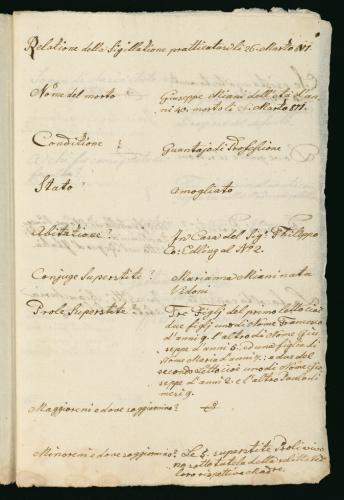 Relatione della Sigillatione pratticatasi li 26. Marzo 811.
Nome del morto
Giuseppe Miani dell'età d'an-
ni 40. morto li 25. Marzo 811.
Conditione :
Guantajo di Professione
Stato
amogliato
Abitatione?
In Casa del Sigr. Philippo
Co: Edling al N° 2.
Conjuge Superstite?
Marianna Miani nata
Vidoni
Prole Superstite
Tre Figli del primo letto cioè
due figli uno di Nome Francesco
d'anni 9. l'altro di Nome Giu-
seppe d'anni 5. ed una figlia di
Nome Maria d'anni 7. a due del
secondo Letto cioè uno di Nome Giu-
seppe d'anni 2. e l'altro di
mesi 9.
Maggioreni e dove soggiornino?
Minoreni e dove soggiornino?
Le 5. superstite Proli vivo-
no sotto tutela della vedova
loro rispettiva Madre.